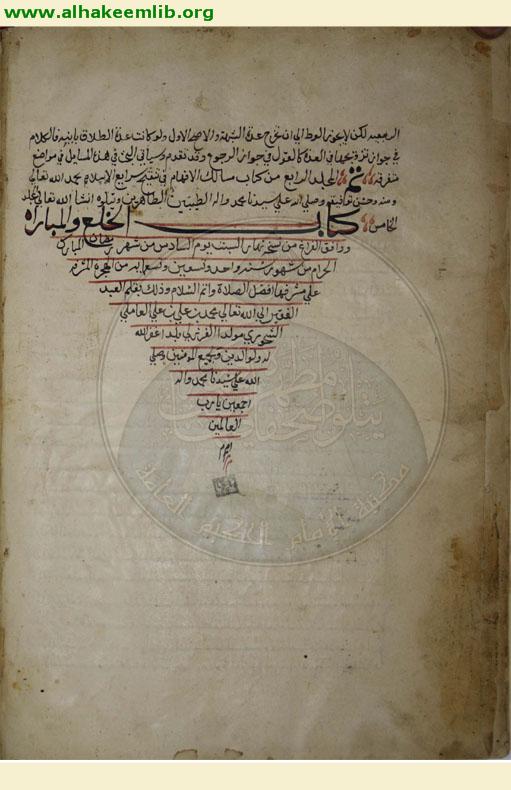 www.alhakeemlib.org
الرجعية لكن لا يجوز الوطء الى ان تخرج عدة الشبهة والاصح الاول ولو كانت عدة الطلاق باينة فالكلام
في جواز تزويجها في العدة كالقول في جواز الرجوع وقد تقدم وسياتي البحث في هذه المسايل في مواضع
متفرقة تم المجلد الرابع من كتاب مسالك الافهام في تنقيح شرايع الاسلام بحمد الله تعالى
ومنه وحسن توفيقه وصلى الله على سيدنا محمد واله الطيبين الطاهرين ويتلوه انشا الله تعالى المجلد
الخامس كتاب الخلع والمباراه
ووافق الفراغ من نسخه نهار السبت يوم السادس من شهر المبارك
الحرام من شهور سنة واحد وتسعين وتسعمايه من الهجرة
على مشرفها افضل الصلاة واتم السلام وذلك بقلم العبد
الفقير الى الله تعالى محمد بن علي بن علي العاملي
مولدا بلدا غفر الله
له ولوالديه ولجميع المومنين وصلى
الله على سيدنا محمد واله
اجمعين يا رب
العالمين
مكتبة الامام الحكيم العامة